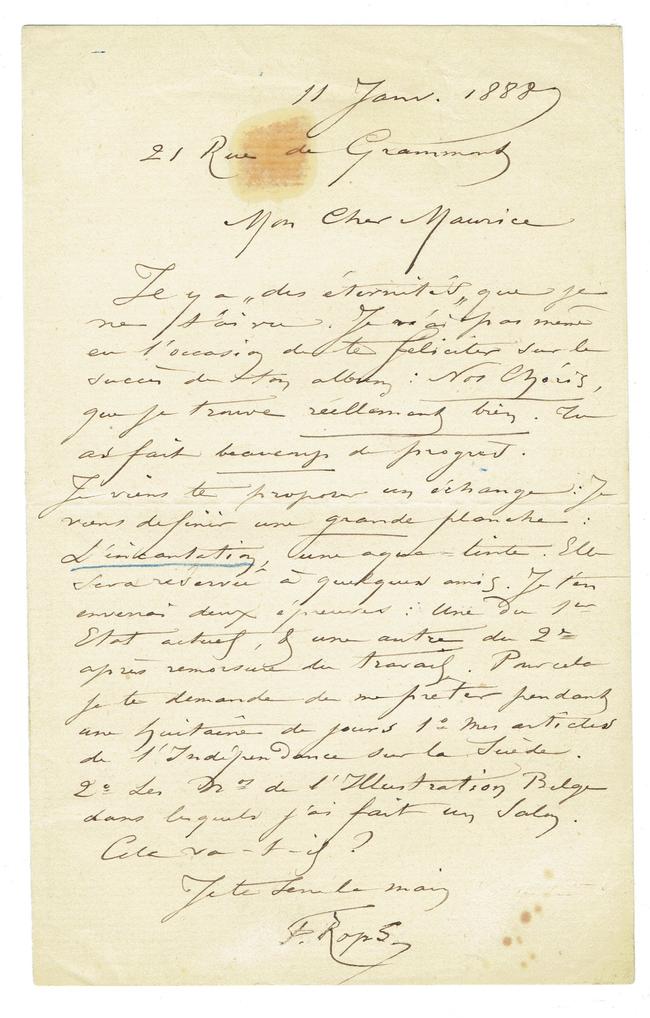 11 Janv. 1888
21 Rue de Grammont
Mon Cher Maurice
Il y a „des éternités„ que je
ne t'ai vu. Je n'ai pas même
eu l'occasion de te féliciter sur le
succès de ton album : Nos
que je trouve réellement bien. Tu
as fait beaucoup de progrès.
Je viens te proposer un échange : Je
viens de finir une grande planche :
L'incantation, une aqua-tinte. Elle
sera reservée à quelques amis. Je t'en
enverrai deux épreuves : Une du 1er
Etat actuel, & une autre du 2e
après remorsure du travail. Pour cela
je te demande de me prêter pendant
une huitaine de jours 1º Mes articles
de l'Indépendance sur la Suède.
2º Les Nos de l'Illustration Belge
dans lesquels j'ai fait un Salon.
Cela va-t-il ?
Je te serre la main
F. Rops